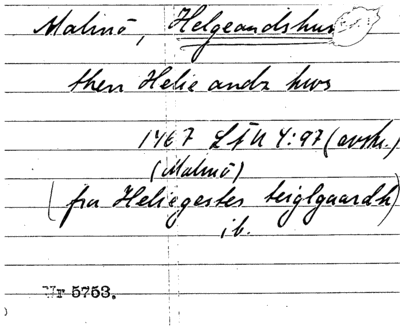 Malmö, Helgeandshus
then Helie andz hws
1467 LÅU 4:97 (avskr.)
(Malmö)
(fra Heliegestes teiglgaardh)
ib.
Nr 5753.